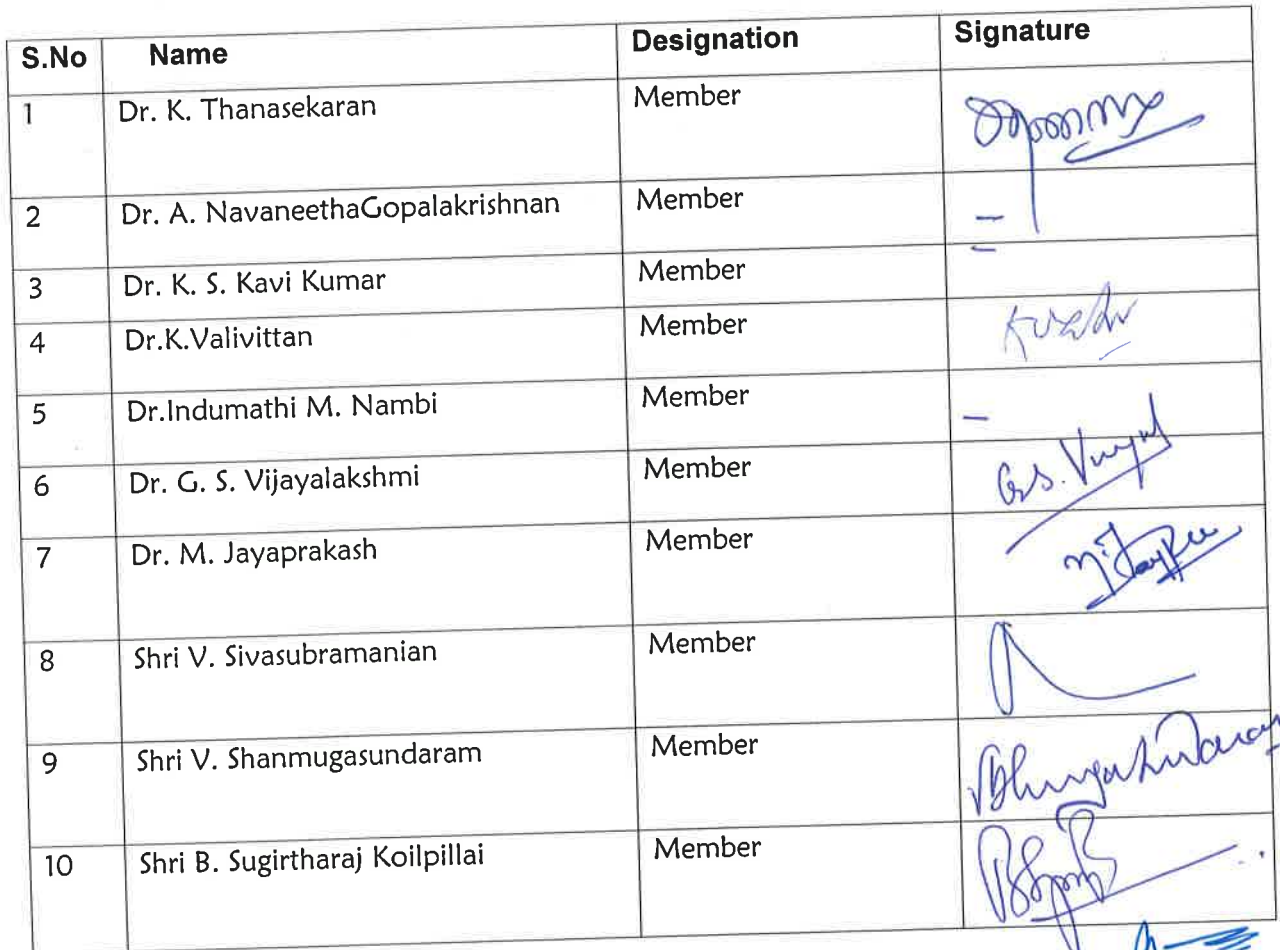 S.No Name Designation Signature
1 Dr. K. Thanasekaran Member
2 Dr. A. NavaneethaGopalakrishnan Member –
3 Dr. K. S. Kavi Kumar Member –
4 Dr.K.Valivittan Member
5 Dr.Indumathi M. Nambi Member –
6 Dr. G. S. Vijayalakshmi Member
7 Dr. M. Jayaprakash Member
8 Shri V. Sivasubramanian Member
9 Shri V. Shanmugasundaram Member
10 Shri B. Sugirtharaj Koilpillai Member